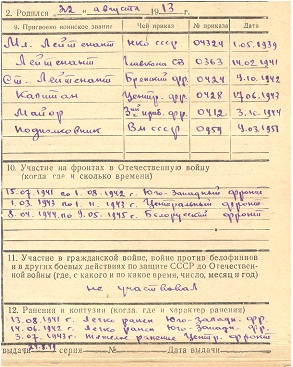 2. Родился "22" августа 1913 г.
9. Присвоено воинское звание Чей приказ № приказа Дата
Мл. Лейтенант НКО СССР 04324 1.05.1939
Лейтенант 0363 14.02.1941
Ст. Лейтенант Брянский фр. 0424 9.10.1942
Капитан Центр. фр. 0428 17.06.1943
Майор 0412 3.10.1944
Подполковник ВМ СССР 0959 9.03.1951
10. Участие на фронтах в Отечественную войну
(когда где и сколько времени)
15.07 1941 по 1.08.1942 г. Юго-Западный фронт
1.03 1943 по 1.11.1943 г. Центральный фронт
8.04 1944 по 9.05.1945 г. Белорусский фронт
11. Участие в гражданской войне, войне против белофиннов
и в других боевых действиях по защите СССР до Отечествен-
ной войны (где, с какого и по какое время, число, месяц и год)
не участвовал
12. Ранения и контузии (когда, где и характер ранения)
13.08.1941 г. легко ранен Юго-Западн. фр.
14.06.1942 г. легко ранен Юго-Западн. фр.
3.07.1943 г. тяжелое ранение Центр. фронт
выдачи серия № выдачи